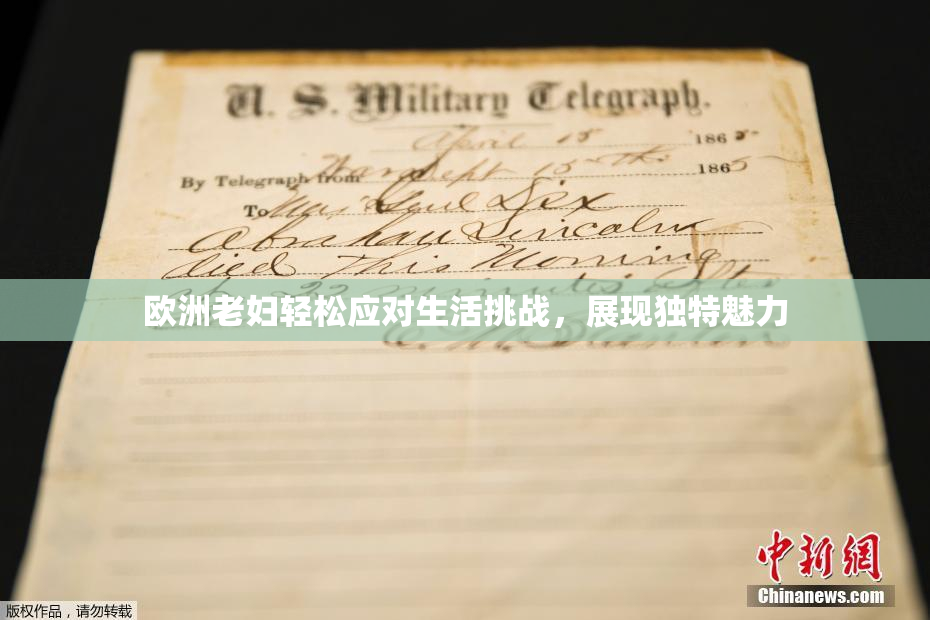 U. S. Military Telegraph.
April 15 1865
By Telegraph from War Dept 15th 1865
To Maj Genl Dix
Abraham Lincoln
died This Morning
22 minutes after
欧洲老妇轻松应对生活挑战，展现独特魅力
中新网
Chinanews.com
版权作品，请勿转载